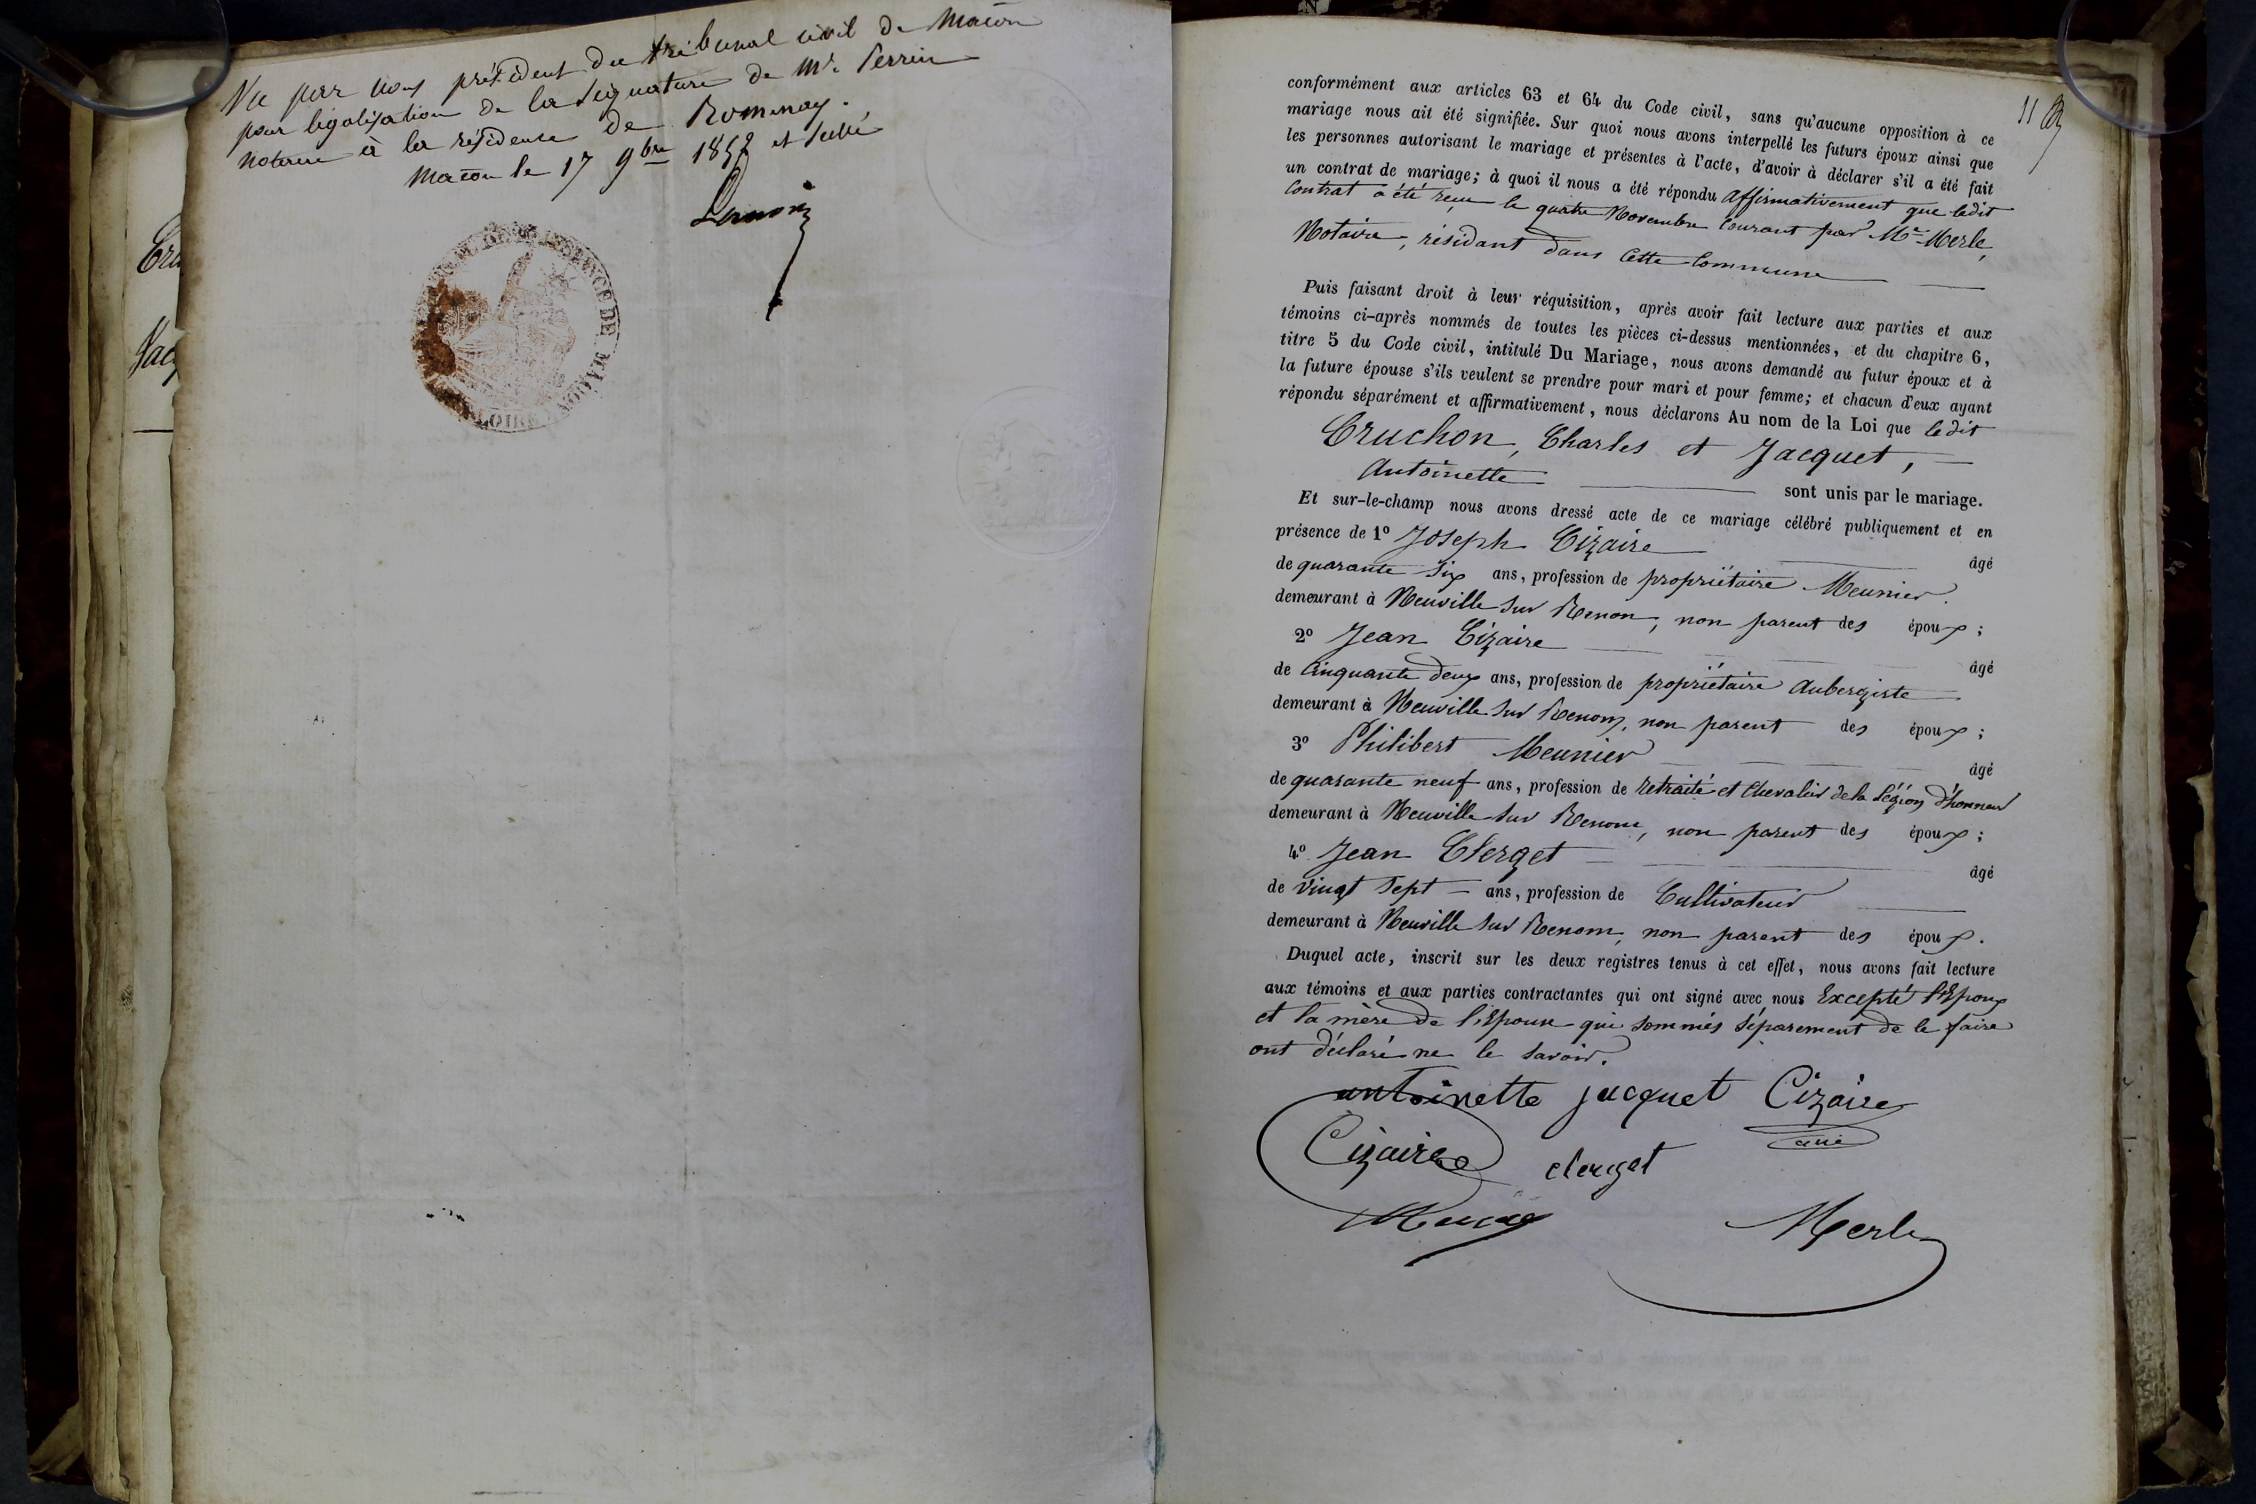 Vu par nous président du tribunal civil de Macon
pour légalisation de la signature de Mr. Perrin
notaire à la résidence de Romenay.
Macon le 17 9bre 1857 et scellé
INSTANCE DE MACON
LOIRE
Cru
Jacq
11
conformément aux articles 63 et 64 du Code civil, sans qu'aucune opposition à ce
mariage nous ait été signifiée. Sur quoi nous avons interpellé les futurs époux ainsi que
les personnes autorisant le mariage et présentes à l'acte, d'avoir à déclarer s'il a été fait
un contrat de mariage; à quoi il nous a été répondu affirmativement que ledit
Contrat a été reçu le quatre Novembre Courant par Me. Merle,
Notaire, résidant dans cette Commune
Puis faisant droit à leur réquisition, après avoir fait lecture aux parties et aux
témoins ci-après nommés de toutes les pièces ci-dessus mentionnées, et du chapitre 6,
titre 5 du Code civil, intitulé Du Mariage, nous avons demandé au futur époux et à
la future épouse s'ils veulent se prendre pour mari et pour femme; et chacun d'eux ayant
répondu séparément et affirmativement, nous déclarons Au nom de la Loi que ledit
Cruchon, Charles et Jacquet,
Antoinette sont unis par le mariage.
Et sur-le-champ nous avons dressé acte de ce mariage célébré publiquement et en
présence de 1º Joseph Cizaire âgé
de quarante six ans, profession de propriétaire Meunier.
demeurant à Neuville sur Renon, non parent des époux;
2º Jean Cizaire âgé
de Cinquante deux ans, profession de propriétaire aubergiste
demeurant à Neuville sur Renom, non parent des époux;
3º Philibert Meunier âgé
de quarante neuf ans, profession de retraité et Chevalier de la Légion d'honneur
demeurant à Neuville sur Renom, non parent des époux;
4º Jean Clerget âgé
de vingt sept ans, profession de Cultivateur
demeurant à Neuville sur Renom, non parent des époux.
Duquel acte, inscrit sur les deux registres tenus à cet effet, nous avons fait lecture
aux témoins et aux parties contractantes qui ont signé avec nous Excepté l'Epoux
et la mère de l'Epouse qui sommés séparement de le faire
ont déclaré ne le savoir.
antoinette jacquet Cizaire
Cizaire clerget
Merle